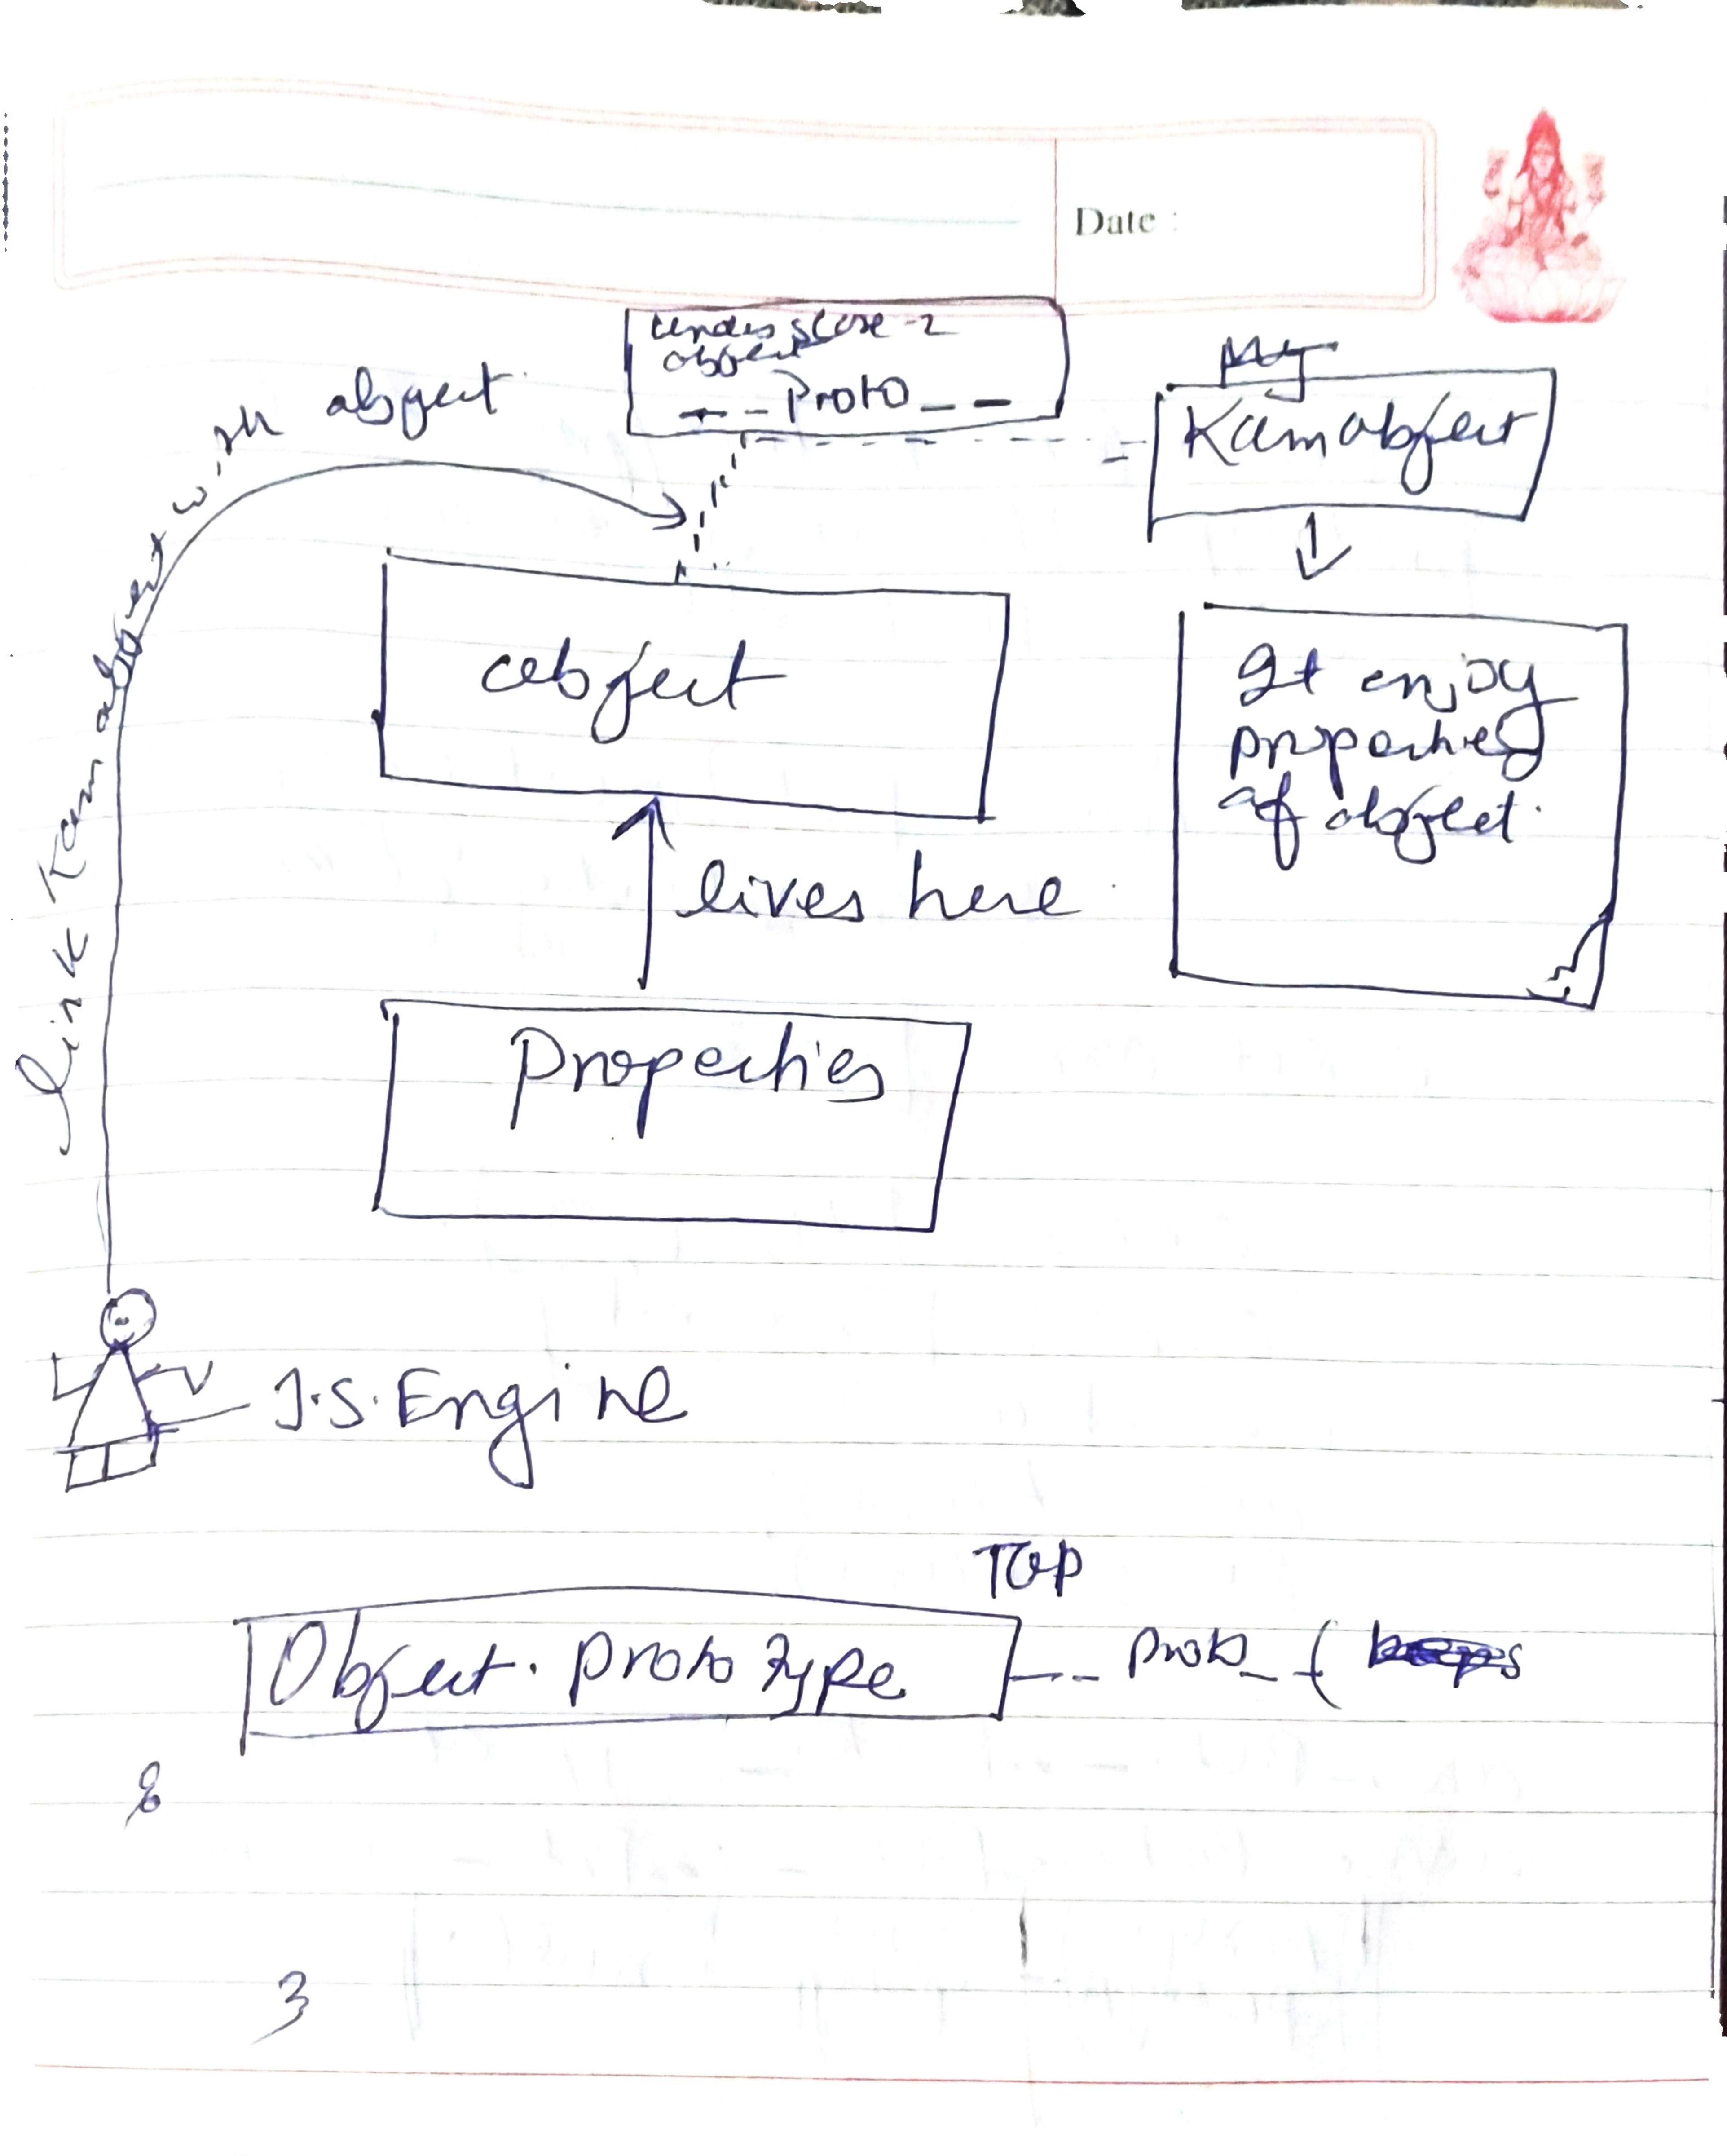 Date :
underscore-2
object
__Proto__
Kamobject
link Kamobject with object
object
It enjoy
properties
of object.
lives here
Properties
J.S. Engine
TOP
Object. Prototype -- Proto __ (
8
3